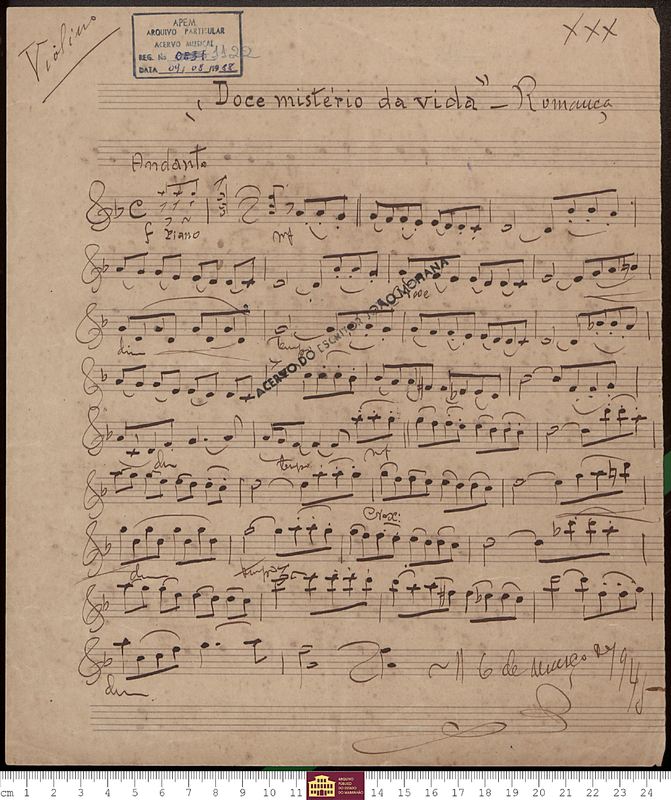 Violino
APEM
ARQUIVO PARTICULAR
ACERVO MUSICAL
REG. No 1122
DATA 04/08/1988
XXX
"Doce mistério da vida" – Romança
Andante
f Piano
mf
ACERVO DO ESCRITOR JOÃO MOHANA
Cresc
dim
tempo
dim
tempo
mf
Cresc:
dim
tempo
dim
6 de março
cm 1 2 3 4 5 6 7 8 9 10 11 14 15 16 17 18 19 20 21 22 23 24
ARQUIVO
PÚBLICO
DO ESTADO
DO MARANHÃO